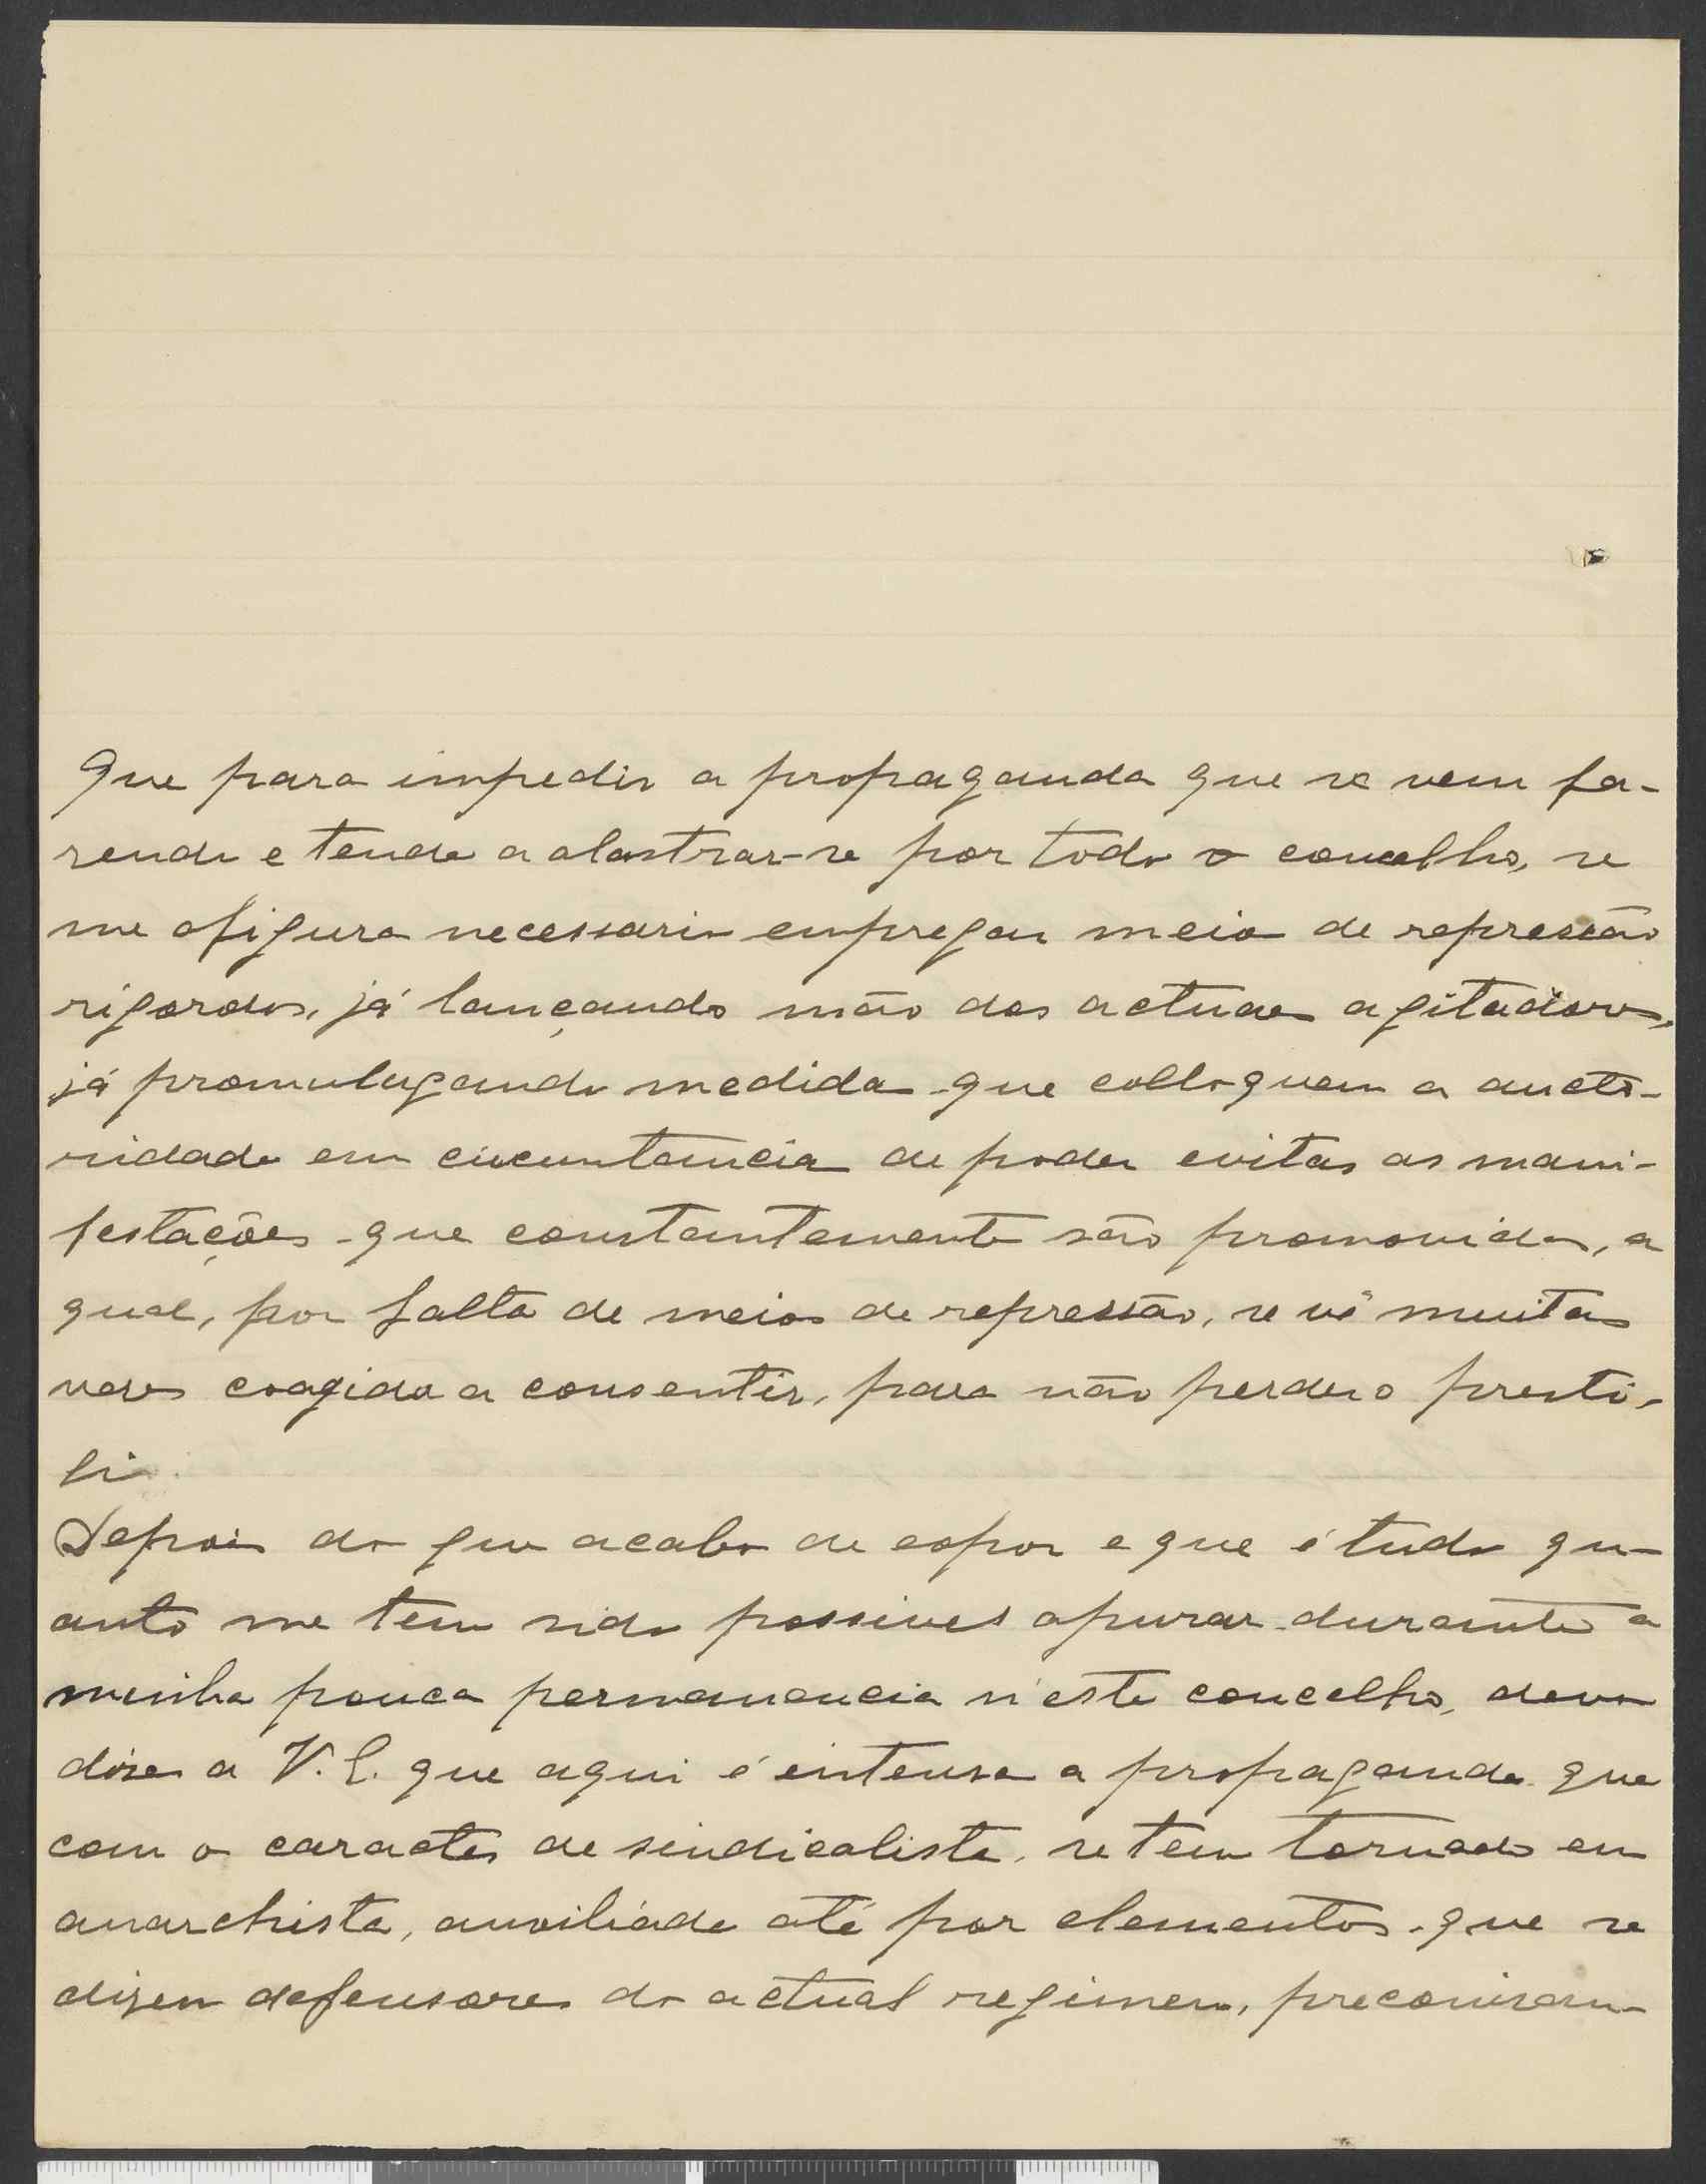 Que para impedir a propaganda que se vem fa-
zendo e tende a alastrar-se por todo o concelho, se
me afigura necessario empregar meios de repressão
rigorosos, já lançando mão dos actuaes agitadores,
já promulugando medidas que colloquem a aucto-
ridade em circumtancias de poder evitar as mani-
festações que constantemente são promovidas, a
qual, por falta de meios de repressão, se vê muitas
vezes coagida a consentir, para não perder o presti-
gio.
Depois do que acabo de expor e que é tudo qu-
anto me tem sido possivel apurar durante a
minha pouca permanencia n'este concelho, devo
dizer a V. E. que aqui é intensa a propaganda que
com o caracter de sindicalista, se tem tornado em
anarchista, auxiliada até por elementos que se
dizem defensores do actual regimen, preconisan-